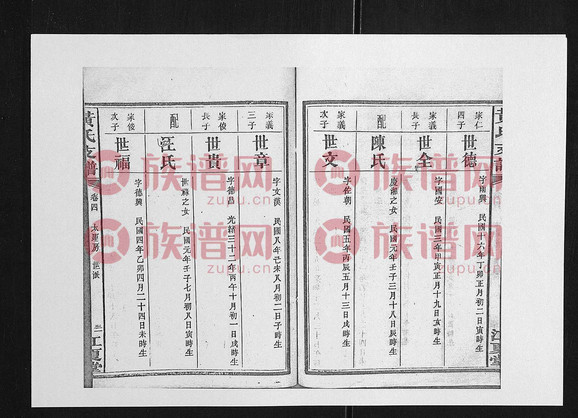 黃氏支譜
江夏堂
宗仁
四子
世德
字潤興 民國十六年丁卯正月初二日寅時生
宗義
長子
世全
字國安 民國三年甲寅正月十九日亥時生
配
陳氏
之女 民國元年壬子三月十八日辰時生
宗義
次子
世文
字佐朝 民國五年丙辰五月十三日戌時生
宗義
三子
世章
字文漢 民國八年己未八月初二日子時生
宗俊
長子
世貴
字德昌 光緒三十二年丙午十月初一日戌時生
配
汪氏
世祿之女 民國元年壬子七月初八日寅時生
宗俊
次子
世福
字德興 民國四年乙卯四月二十四日未時生
黃氏支譜
卷四
江夏堂
族谱网
zupu.cn
族谱网
zupu.cn
族谱网
zupu.cn
族谱网
zupu.cn